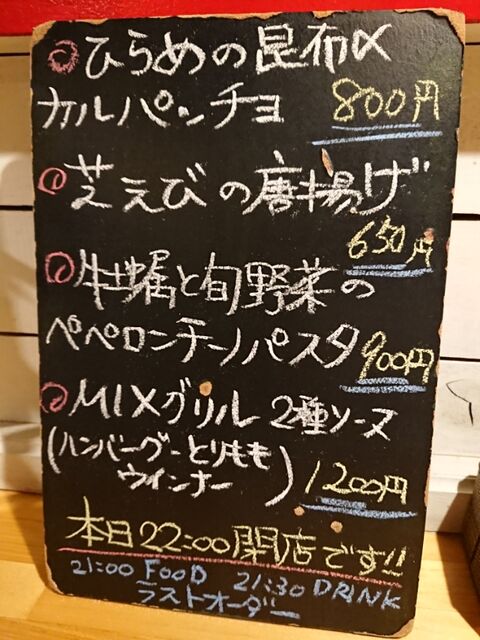 ひらめの昆布〆
カルパンチョ 800円
芝えびの唐揚げ
650円
牡蠣と旬野菜の
ペペロンチーノパスタ 900円
MIXグリル 2種ソース
(ハンバーグーとりもも
ウインナー) 1200円
本日22:00閉店です!!
21:00 FOOD 21:30 DRINK
ラストオーダー